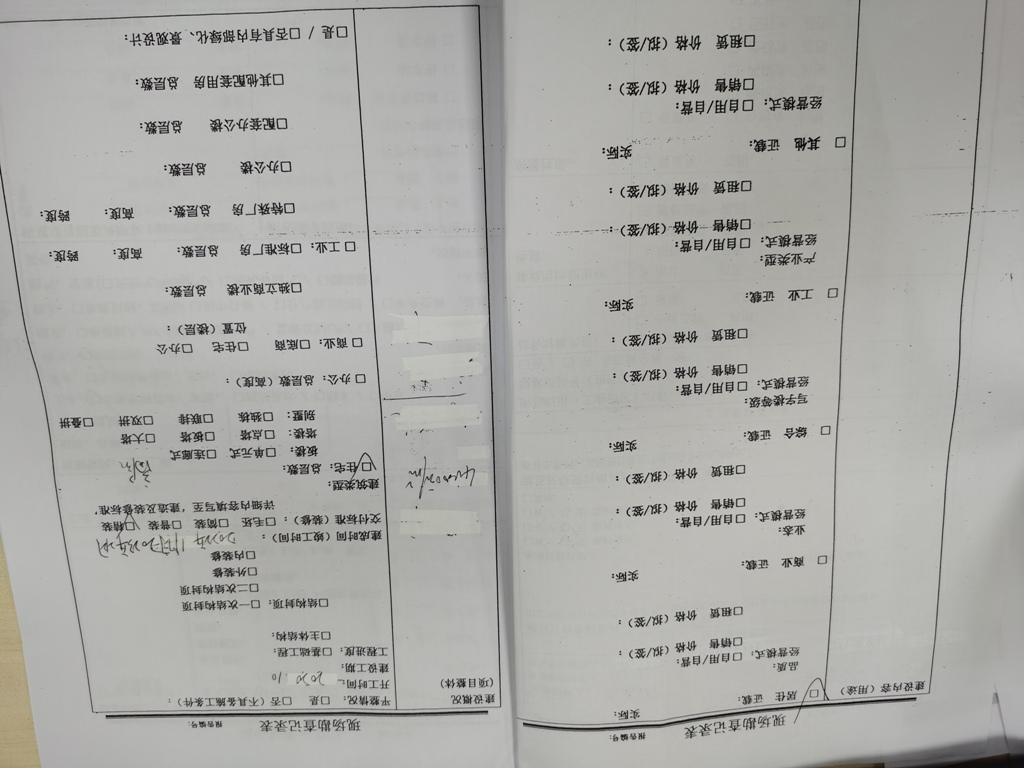 现场勘查记录表 报告编号:
建设内容(用途) □ 居住 证载: 实际:
品质:
经营模式: □自用/自营:
□销售 价格(拟/签):
□租赁 价格(拟/签):
□ 商业 证载: 实际:
业态:
经营模式: □自用/自营:
□销售 价格(拟/签):
□租赁 价格(拟/签):
□ 综合 证载: 实际:
写字楼等级:
经营模式: □自用/自营:
□销售 价格(拟/签):
□租赁 价格(拟/签):
□ 工业 证载: 实际:
产业类型:
经营模式: □自用/自营:
□销售 价格(拟/签):
□租赁 价格(拟/签):
□ 其他 证载: 实际:
经营模式: □自用/自营:
□销售 价格(拟/签):
□租赁 价格(拟/签):
现场勘查记录表 报告编号:
建设概况
(项目整体)
平整情况: □是 □否(不具备施工条件):
开工时间: 2020.10
建设工期:
工程进度: □基础工程:
□主体结构:
□结构封顶: □一次结构封顶
□二次结构封顶
□外装修
□内装修
建成时间(竣工时间):
交付标准(装修): □毛坯 □简装 □普装 □精装
详细内容填写至,建造及装修标准,
建筑类型:
□住宅: 总层数:
板楼: □单元式 □连廊式
塔楼: □点塔 □板塔 □大塔
别墅: □独栋 □联排 □双拼 □叠拼
□办公: 总层数(高度):
□商业: □底商 □住宅 □办公
位置(楼层):
□独立商业总层数:
□工业: □标准厂房 总层数: 高度: 跨度:
□特殊厂房 总层数: 高度: 跨度:
□办公楼 总层数:
□配套办公楼 总层数:
□其他配套用房 总层数:
□是 / □否具有内部绿化、景观设计: